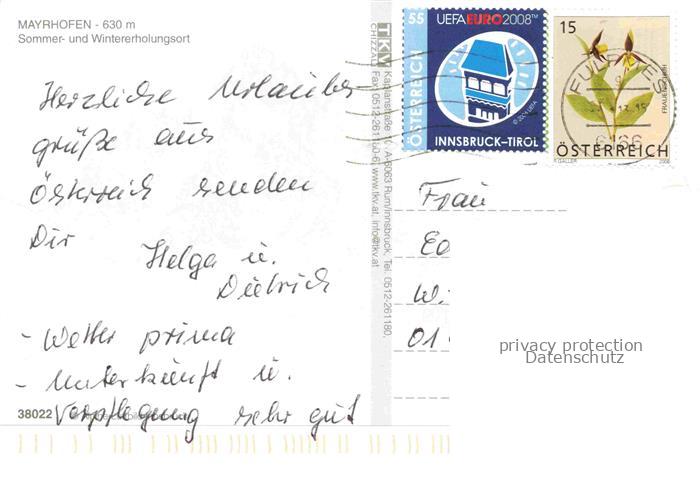 MAYRHOFEN - 630 m
Sommer- und Wintererholungsort
Herzliche Urlaubs
grüße aus
Österreich senden
Dir
Helga u.
Dietrich
- Wetter prima
- Unterkunft u.
Verpflegung sehr gut
38022
TKV
Kaplanstraße 10, A-6063 Rum/Innsbruck, Tel. 0512-261180,
CHIZZALI Fax: 0512-261180-6, www.tkv.at, info@tkv.at
55
UEFA EURO2008™
ÖSTERREICH
© 2004 UEFA
INNSBRUCK–TIROL
15
FRAUENSCHUH
ÖSTERREICH
2008
FULPMES
6166
Frau
Ed
Wi
01
privacy protection
Datenschutz